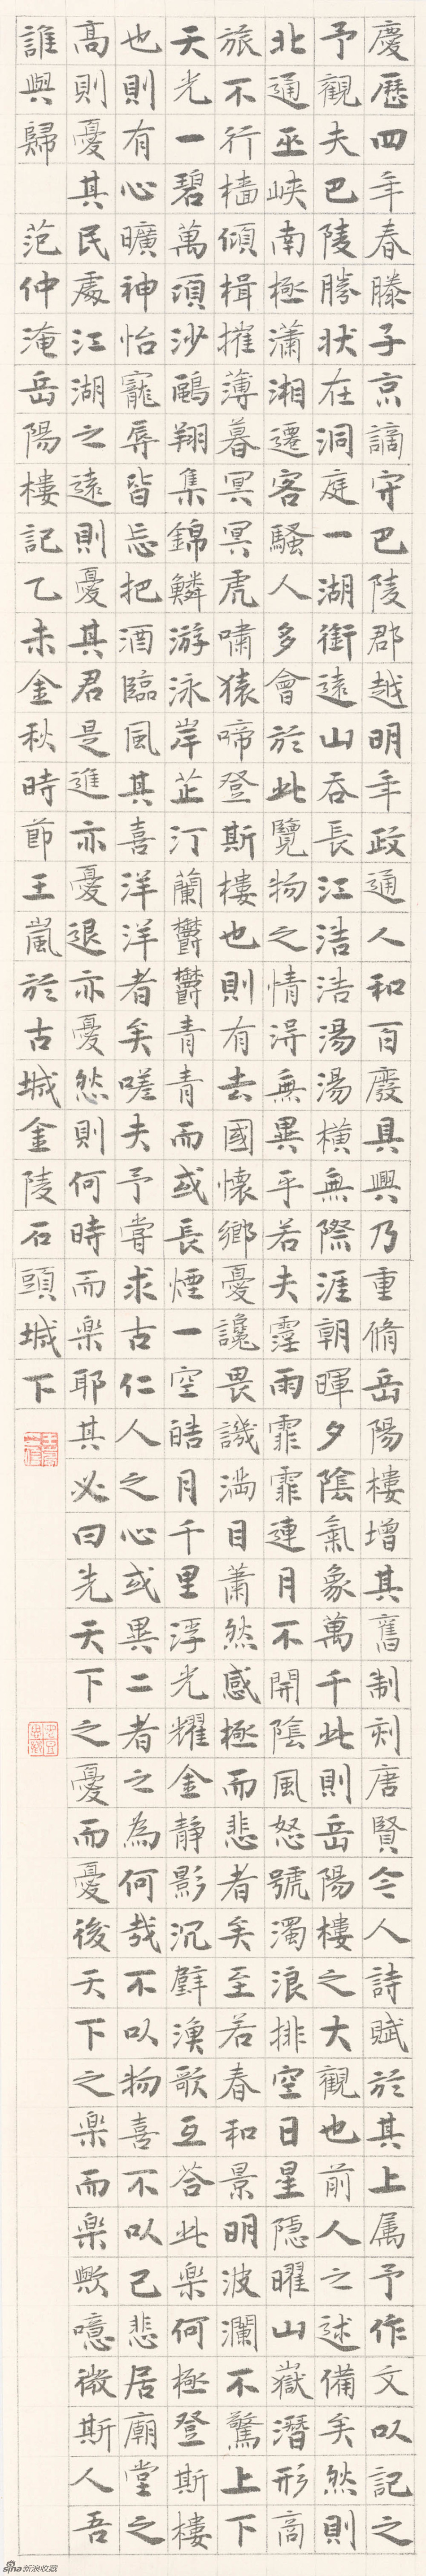 慶歷四年春滕子京謫守巴陵郡越明年政通人和百廢具興乃重脩岳陽樓增其舊制刻唐賢今人詩賦於其上属予作文以記之
予觀夫巴陵勝狀在洞庭一湖銜遠山吞長江浩浩湯湯橫無際涯朝暉夕陰氣象萬千此則岳陽樓之大觀也前人之述備矣然則
北通巫峽南極瀟湘遷客騷人多會於此覽物之情淂無異乎若夫霪雨霏霏連月不開陰風怒號濁浪排空日星隱曜山嶽潛形商
旅不行檣傾楫摧薄暮冥冥虎嘯猿啼登斯樓也則有去國懷鄉憂讒畏譏滿目蕭然感極而悲者矣至若春和景明波瀾不驚上下
天光一碧萬頃沙鷗翔集錦鱗游泳岸芷汀蘭鬱鬱青青而或長煙一空皓月千里浮光耀金静影沉壁漁歌互答此樂何極登斯樓
也則有心曠神怡寵辱皆忘把酒臨風其喜洋洋者矣嗟夫予嘗求古仁人之心或異二者之為何哉不以物喜不以己悲居廟堂之
高則憂其民處江湖之遠則憂其君是進亦憂退亦憂然則何時而樂耶其必曰先天下之憂而憂後天下之樂而樂歟噫微斯人吾
誰與歸 范仲淹岳陽樓記乙未金秋時節王嵐於古城金陵石頭城下
sina新浪收藏